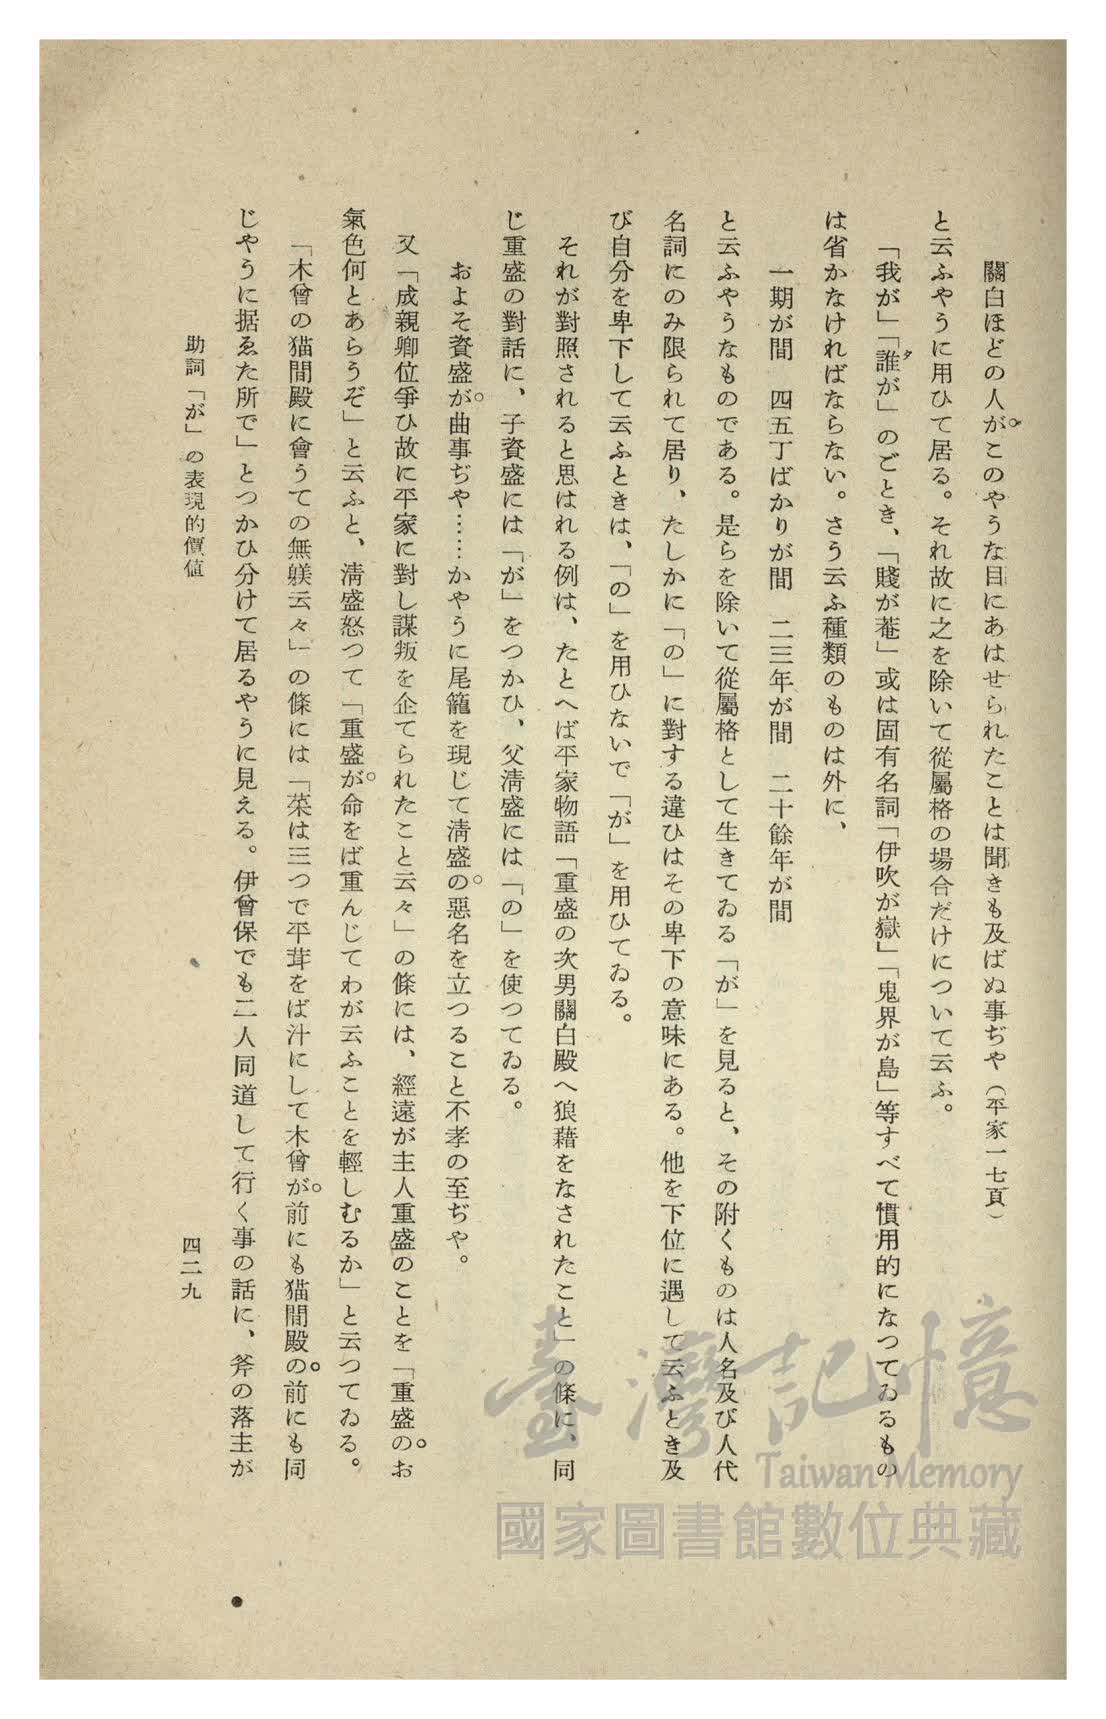 關白ほどの人がこのやうな目にあはせられたことは聞きも及ばぬ事ぢや（平家一七頁）
と云ふやうに用ひて居る。それ故に之を除いて從屬格の場合だけについて云ふ。
「我が」「誰が」のごとき、「賤が菴」或は固有名詞「伊吹が嶽」「鬼界が島」等すべて慣用的になつてゐるもの
タ
は省かなければならない。さう云ふ種類のものは外に、
一期が間　四五丁ばかりが間　二三年が間　二十餘年が間
と云ふやうなものである。是らを除いて從屬格として生きてゐる「が」を見ると、その附くものは人名及び人代
名詞にのみ限られて居り、たしかに「の」に對する違ひはその卑下の意味にある。他を下位に遇して云ふとき及
び自分を卑下して云ふときは、「の」を用ひないで「が」を用ひてゐる。
それが對照されると思はれる例は、たとへば平家物語「重盛の次男關白殿へ狼藉をなされたこと」の條に、同
じ重盛の對話に、子資盛には「が」をつかひ、父淸盛には「の」を使つてゐる。
およそ資盛が曲事ぢや……かやうに尾籠を現じて淸盛の惡名を立つること不孝の至ぢや。
又「成親卿位爭ひ故に平家に對し謀叛を企てられたこと云々」の條には、經遠が主人重盛のことを「重盛のお
氣色何とあらうぞ」と云ふと、淸盛怒つて「重盛が命をば重んじてわが云ふことを輕しむるか」と云つてゐる。
「木曾の猫間殿に會うての無躾云々」の條には「菜は三つで平茸をば汁にして木曾が前にも猫間殿の前にも同
じやうに据ゑた所で」とつかひ分けて居るやうに見える。伊曾保でも二人同道して行く事の話に、斧の落主が
助詞「が」の表現的價値
四二九
臺灣記憶
Taiwan Memory
國家圖書館數位典藏